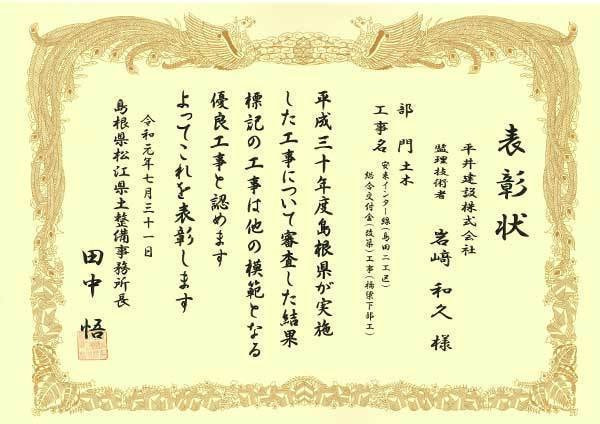 表彰状
平井建設株式会社
監理技術者
岩﨑 和久 様
部門 土木
工事名 安来インター線(島田二工区)
総合交付金(改築)工事(橋梁下部工)
平成三十年度島根県が実施
した工事について審査した結果
標記の工事は他の模範となる
優良工事と認めます
よってこれを表彰します
令和元年七月三十一日
島根県松江県土整備事務所長
田中 悟